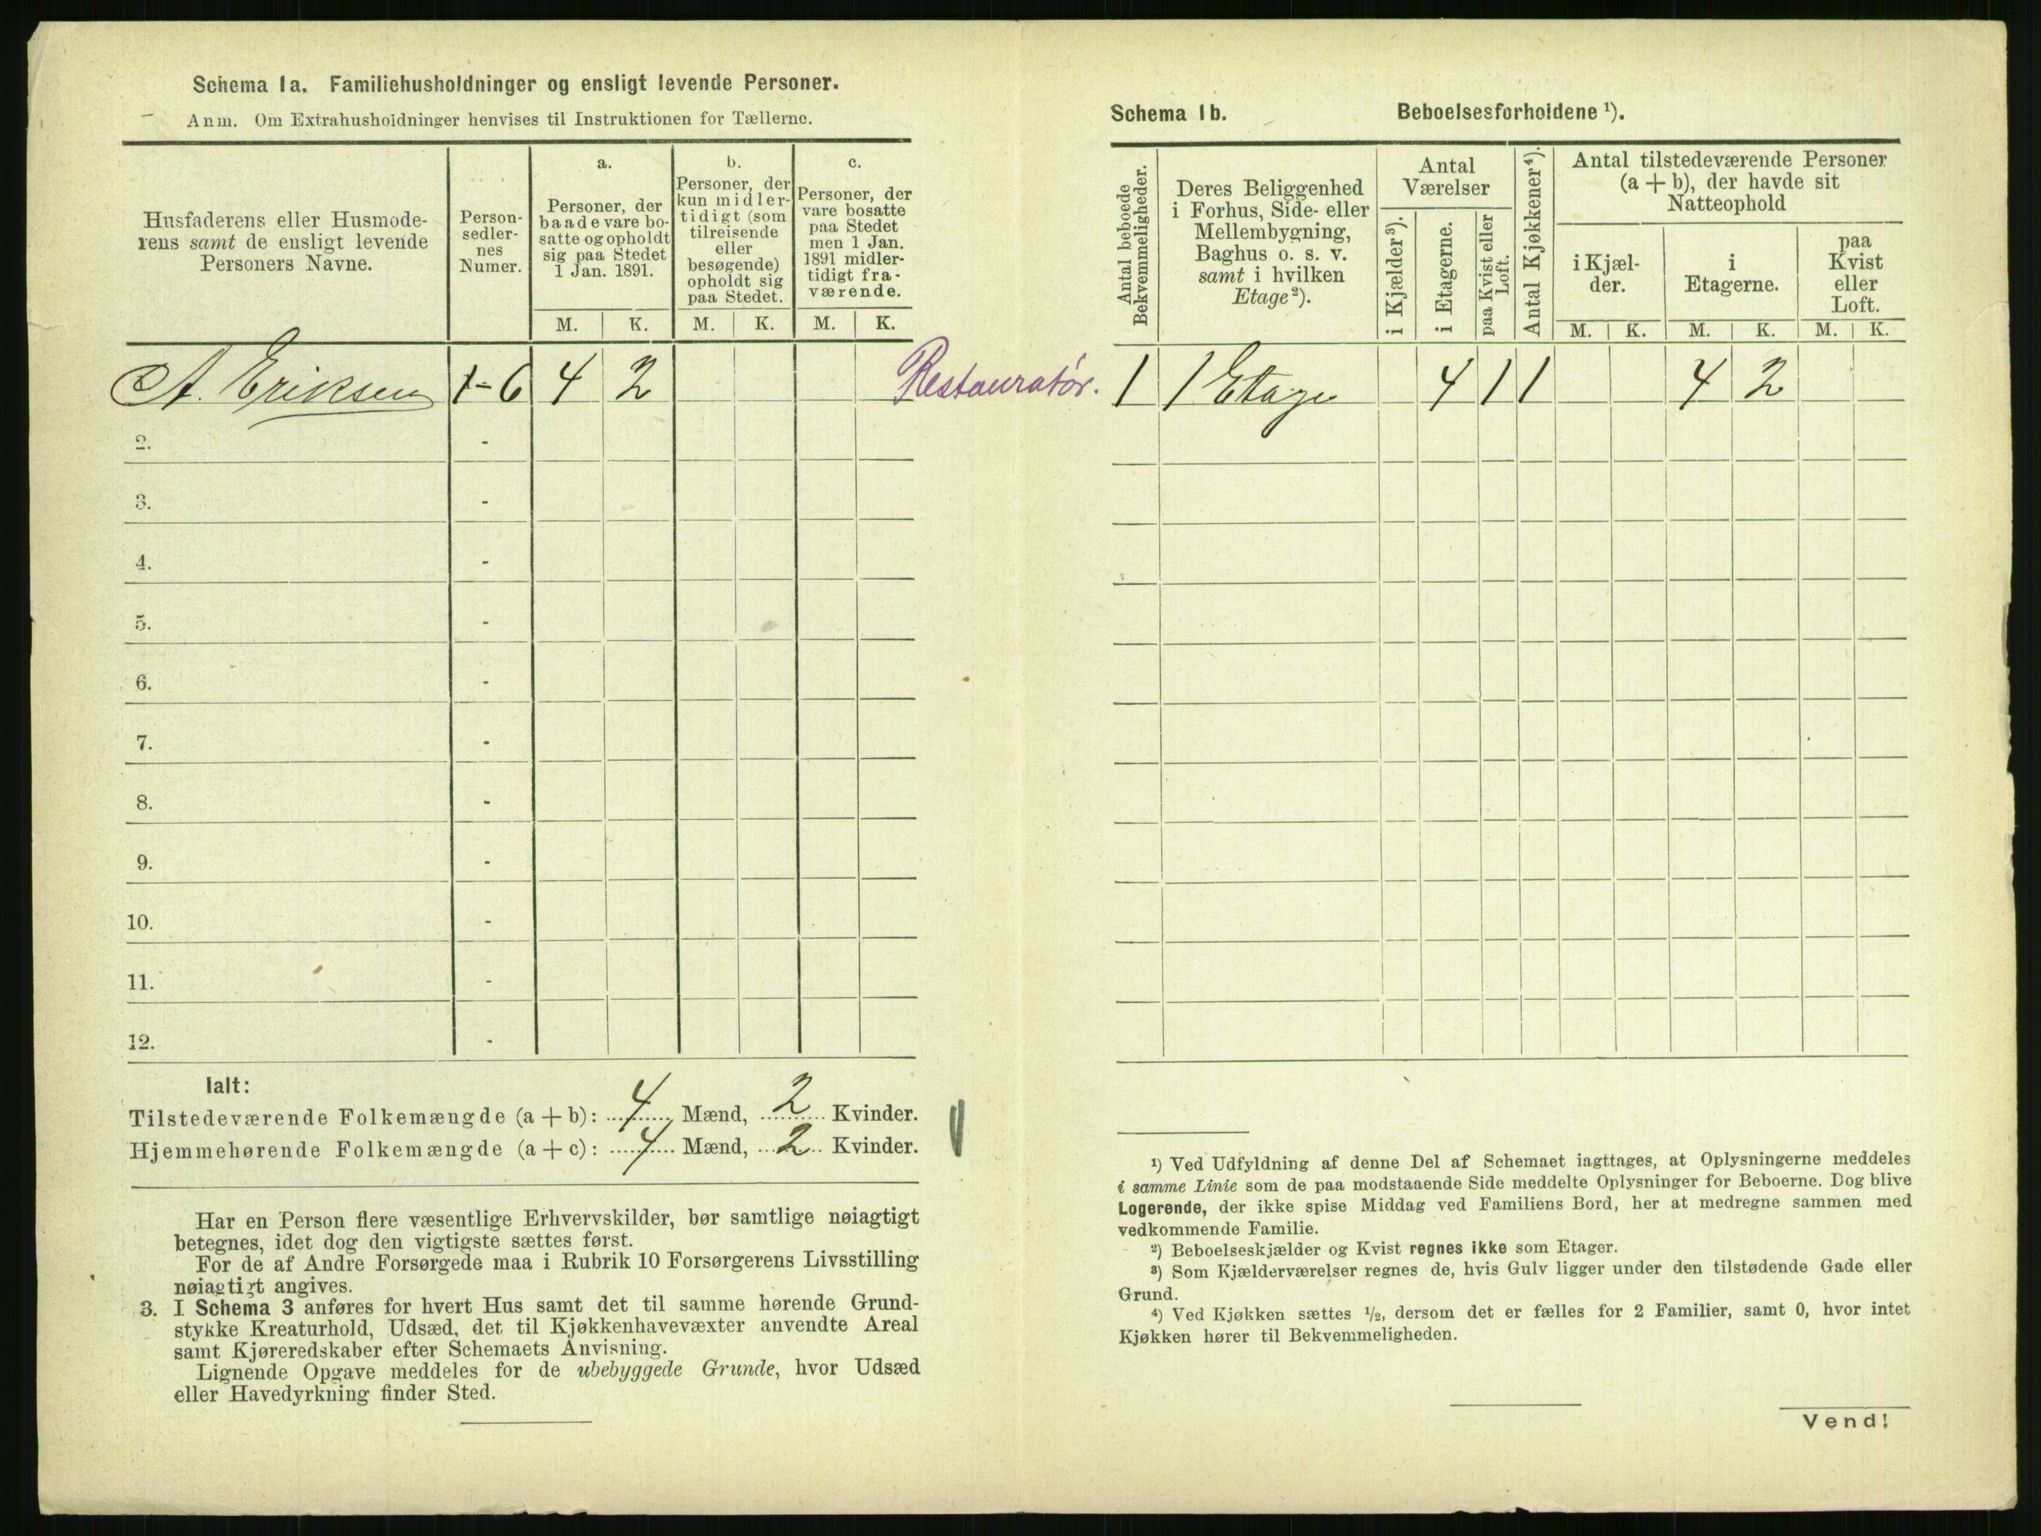 Schema 1a. Familiehusholdninger og ensligt levende Personer.
Anm. Om Extrahusholdninger henvises til Instruktionen for Tællerne.
Husfaderens eller Husmode-
rens samt de ensligt levende
Personers Navne.
Person-
sedler-
nes
Numer.
a.
Personer, der
baade vare bo-
satte og opholdt
sig paa Stedet
1 Jan. 1891.
M. K.
b.
Personer, der
kun midler-
tidigt (som
tilreisende
eller
besøgende)
opholdt sig
paa Stedet.
M. K.
c.
Personer, der
vare bosatte
paa Stedet
men 1 Jan.
1891 midler-
tidigt fra-
værende.
M. K.
A. Eriksen 1-6 4 2
Restauratør.
2. -
3. -
4. -
5. -
6. -
7. -
8. -
9. -
10. -
11. -
12. -
Ialt:
Tilstedeværende Folkemængde (a + b): 4 Mænd, 2 Kvinder.
Hjemmehørende Folkemængde (a + c): 4 Mænd, 2 Kvinder.
Har en Person flere væsentlige Erhvervskilder, bør samtlige nøiagtigt
betegnes, idet dog den vigtigste sættes først.
For de af Andre Forsørgede maa i Rubrik 10 Forsørgerens Livsstilling
nøiagtigt angives.
3. I Schema 3 anføres for hvert Hus samt det til samme hørende Grund-
stykke Kreaturhold, Udsæd, det til Kjøkkenhavevæxter anvendte Areal
samt Kjøreredskaber efter Schemaets Anvisning.
Lignende Opgave meddeles for de ubebyggede Grunde, hvor Udsæd
eller Havedyrkning finder Sted.
Schema 1b. Beboelsesforholdene ¹).
Antal beboede
Bekvemmeligheder.
Deres Beliggenhed
i Forhus, Side- eller
Mellembygning,
Baghus o. s. v.
samt i hvilken
Etage²).
Antal
Værelser
i Kjælder³).
i Etagerne.
paa Kvist eller
Loft.
Antal Kjøkkener⁴).
Antal tilstedeværende Personer
(a + b), der havde sit
Natteophold
i Kjæl-
der.
i
Etagerne.
paa
Kvist
eller
Loft.
M. K. M. K. M. K.
1 1 Etage 4 1 1 4 2
¹) Ved Udfyldning af denne Del af Schemaet iagttages, at Oplysningerne meddeles
i samme Linie som de paa modstaaende Side meddelte Oplysninger for Beboerne. Dog blive
Logerende, der ikke spise Middag ved Familiens Bord, her at medregne sammen med
vedkommende Familie.
²) Beboelseskjælder og Kvist regnes ikke som Etager.
³) Som Kjælderværelser regnes de, hvis Gulv ligger under den tilstødende Gade eller
Grund.
⁴) Ved Kjøkken sættes ½, dersom det er fælles for 2 Familier, samt 0, hvor intet
Kjøkken hører til Bekvemmeligheden.
Vend!